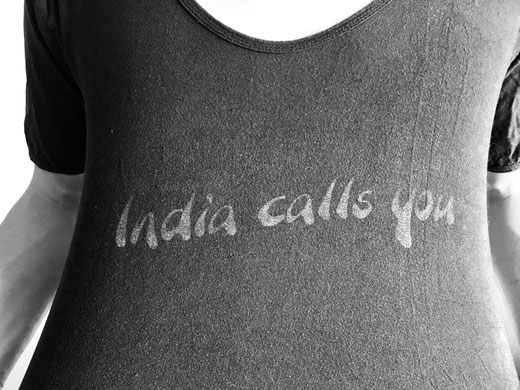 India calls you